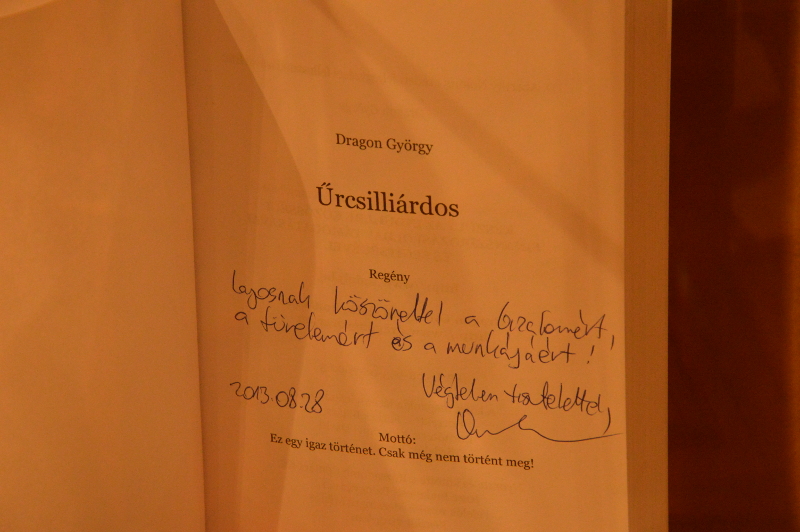 Dragon György
Űrcsilliárdos
Regény
Lajosnak köszönettel a bizalomért,
a türelemért és a munkájáért!
Végtelen tisztelettel,
2013.08.28
Mottó:
Ez egy igaz történet. Csak még nem történt meg!